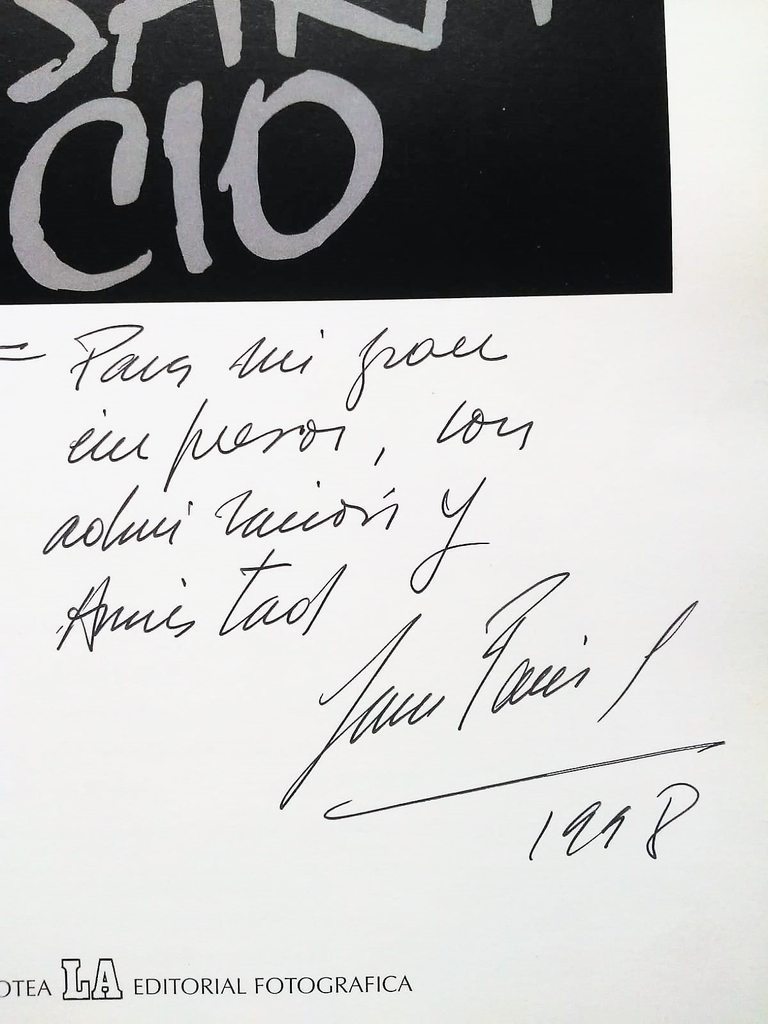 CIO
= Para mi gran
impresor, con
admiración y
Amistad
1998
OTEA LA EDITORIAL FOTOGRAFICA